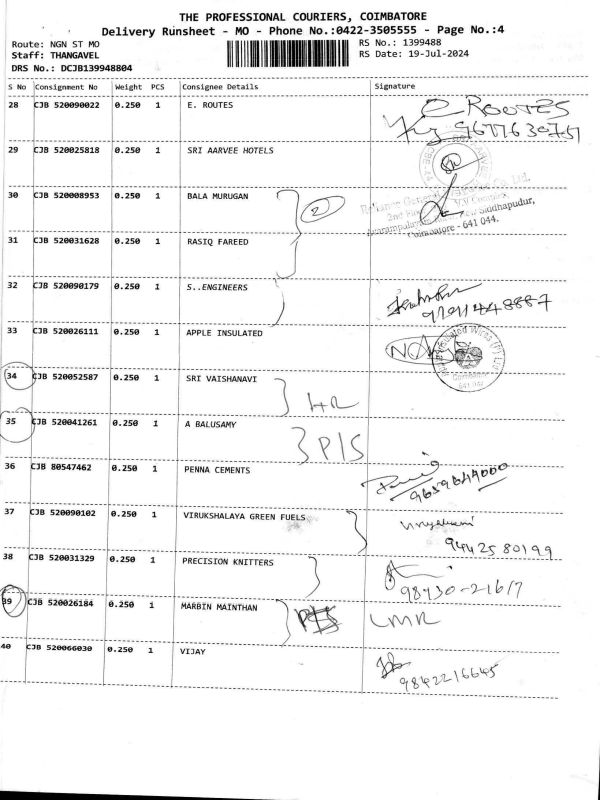 THE PROFESSIONAL COURIERS, COIMBATORE
Delivery Runsheet - MO - Phone No.:0422-3505555 - Page No.:4
Route: NGN ST MO
RS No.: 1399488
Staff: THANGAVEL
RS Date: 19-Jul-2024
DRS No.: DCJB139948804
S No Consignment No Weight PCS Consignee Details Signature
28 CJB 520090022 0.250 1 E. ROUTES
E ROUTES
29 CJB 520025818 0.250 1 SRI AARVEE HOTELS
30 CJB 520008953 0.250 1 BALA MURUGAN
2
Reliance General
Siddhapudur,
Coimbatore - 641 044.
31 CJB 520031628 0.250 1 RASIQ FAREED
32 CJB 520090179 0.250 1 S..ENGINEERS
33 CJB 520026111 0.250 1 APPLE INSULATED
34 CJB 520052587 0.250 1 SRI VAISHANAVI
35 CJB 520041261 0.250 1 A BALUSAMY
P/S
36 CJB 80547462 0.250 1 PENNA CEMENTS
37 CJB 520090102 0.250 1 VIRUKSHALAYA GREEN FUELS
9442580199
38 CJB 520031329 0.250 1 PRECISION KNITTERS
39 CJB 520026184 0.250 1 MARBIN MAINTHAN
40 CJB 520066030 0.250 1 VIJAY
9842216645